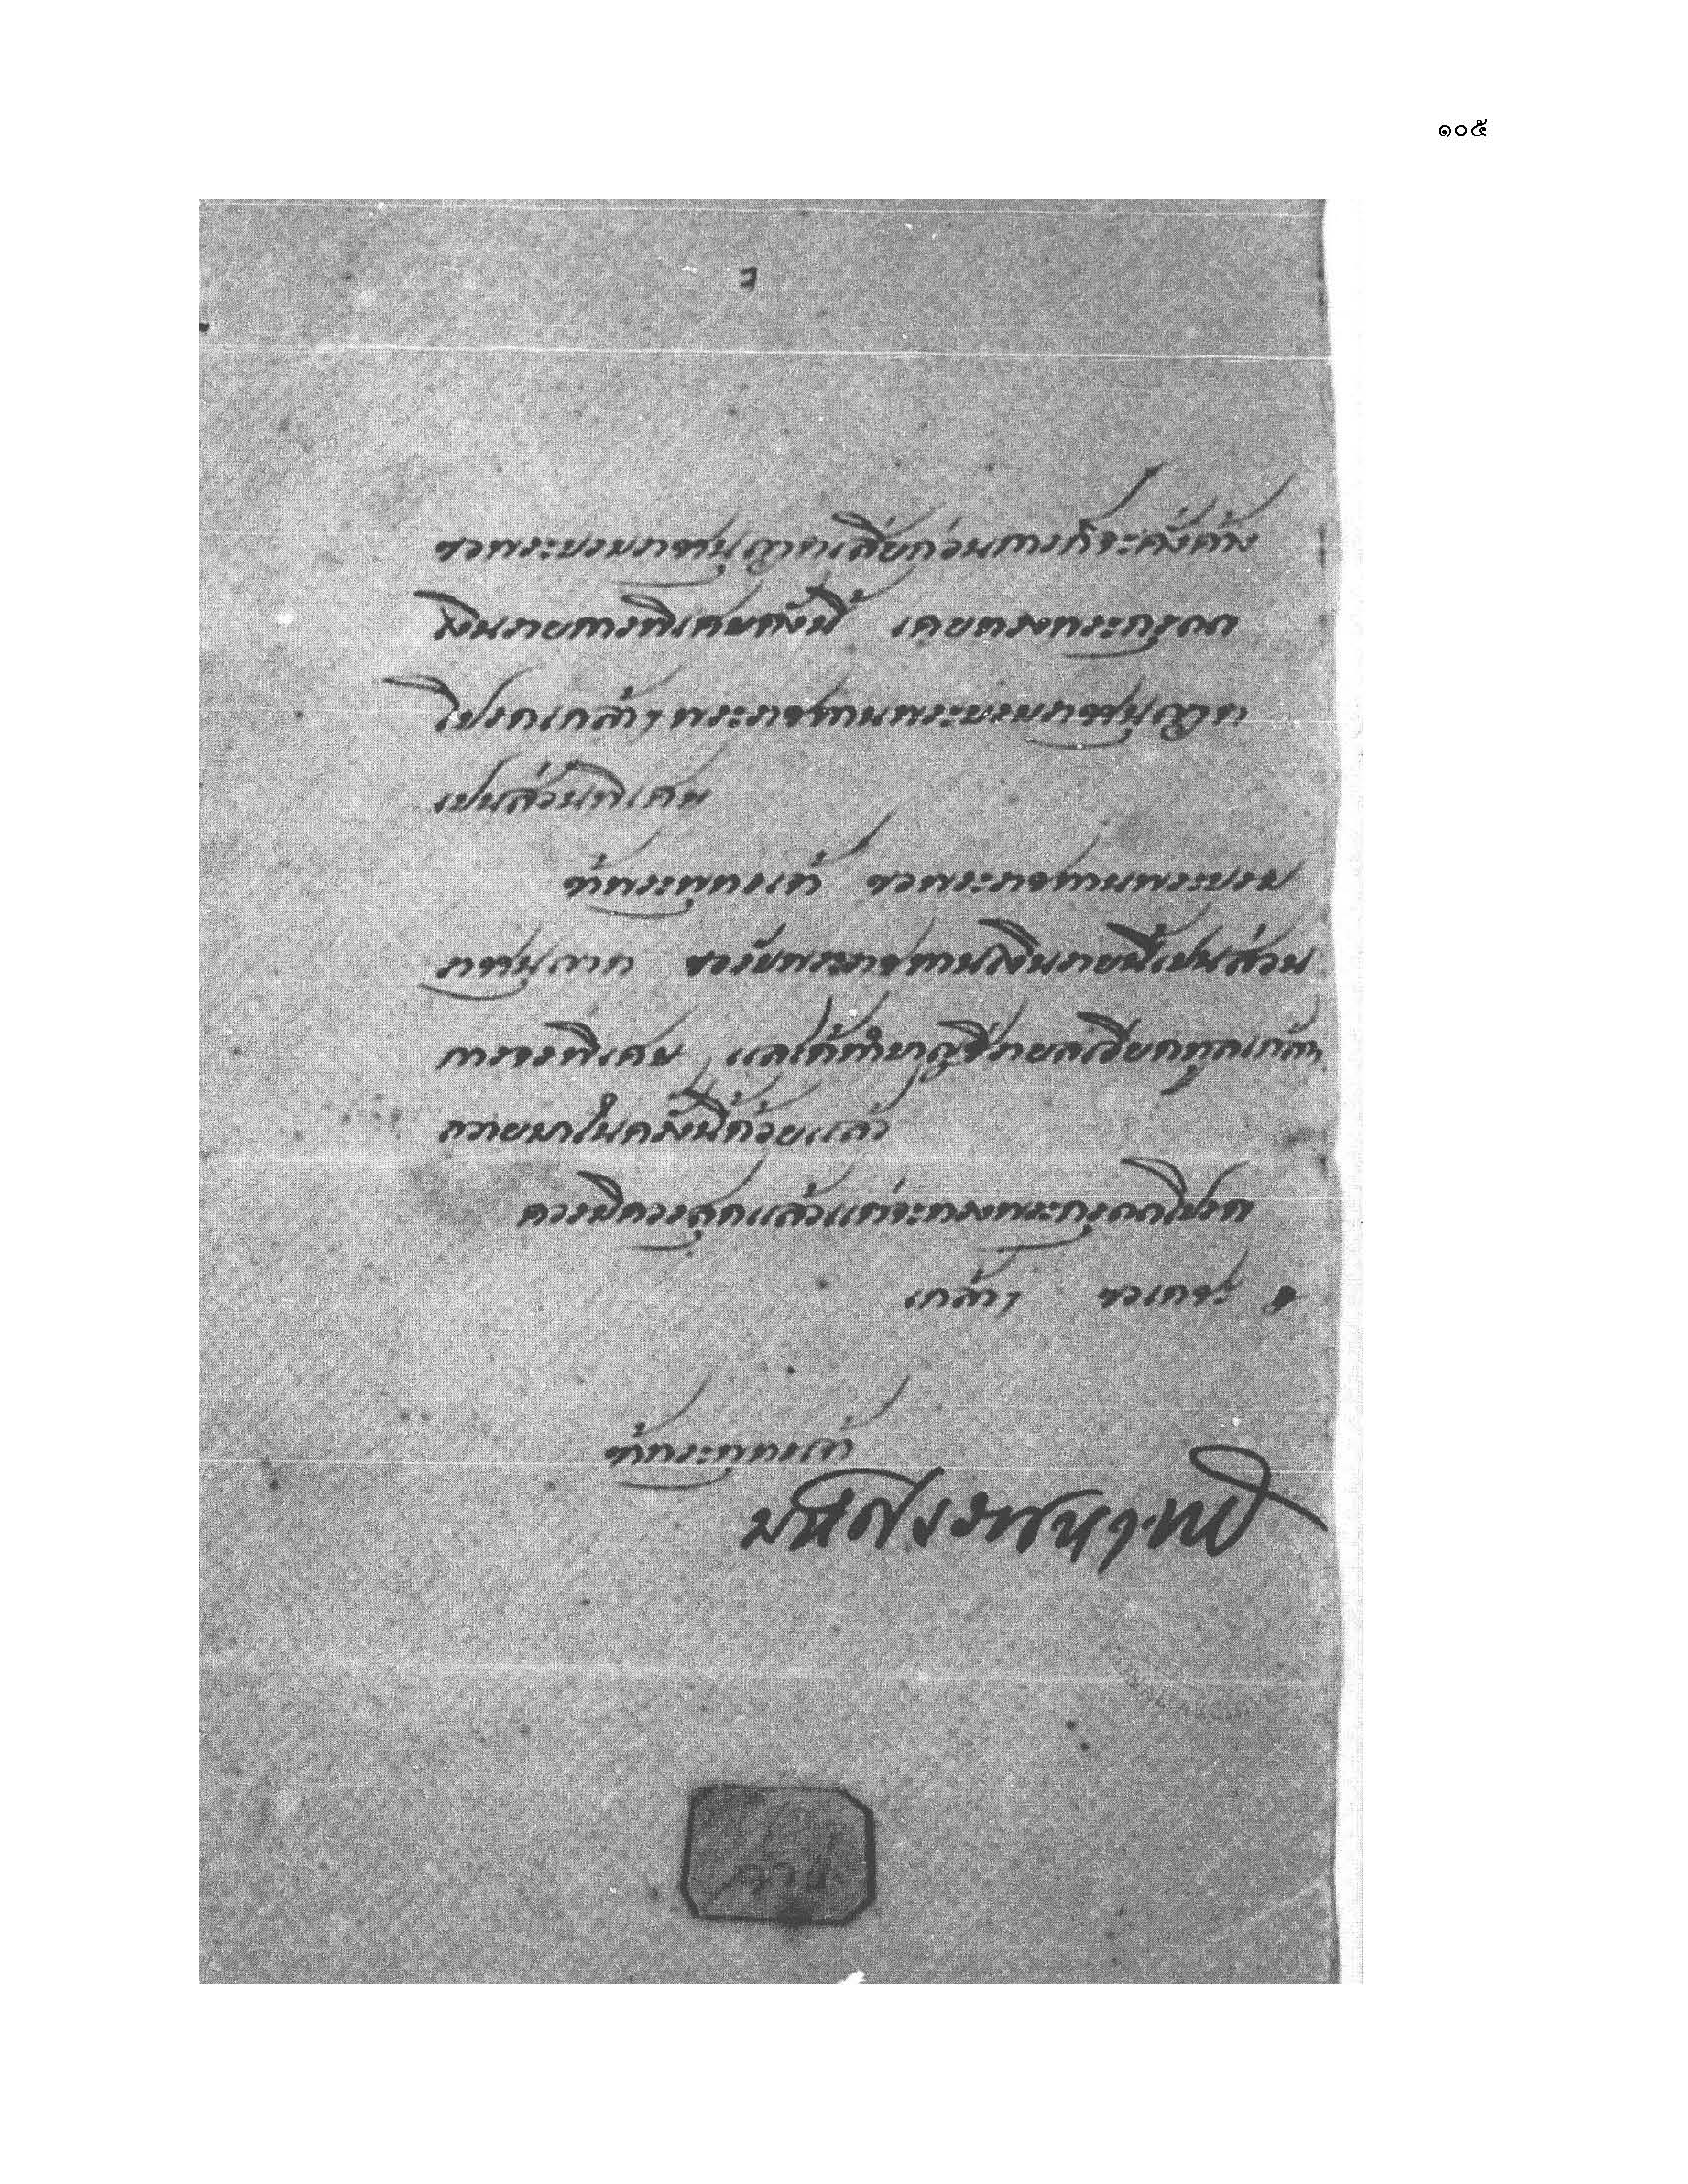 ๑๐๕
๓
ขอพระบรมราชานุญาตเสียก่อนการก็จะคั่งค้าง
เงินรายการพิเศษดังนี้ เคยทรงพระกรุณา
โปรดเกล้าฯ พระราชทานพระบรมราชานุญาต
เปนส่วนพิเศษ
ข้าพระพุทธเจ้า ขอพระราชทานพระบรม
ราชานุญาต ขอรับพระราชทานเงินรายนี้เปนส่วน
การจรพิเศษ แลได้ทำบาญชีรายลเอียดทูลเกล้าฯ
ถวายมาในครั้งนี้ด้วยแล้ว
ควรมิควรสุดแล้วแต่จะทรงพระกรุณาโปรด
เกล้าฯ ขอเดชะ
ข้าพระพุทธเจ้า